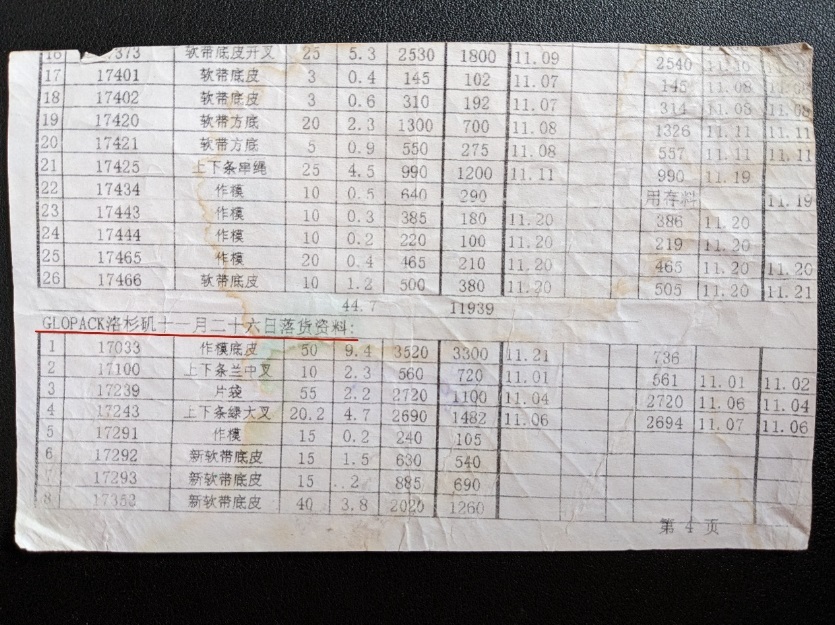 16 17373 软带底皮开叉 25 5.3 2530 1800 11.09 2540
17 17401 软带底皮 3 0.4 145 102 11.07 145 11.08 11.11
18 17402 软带底皮 3 0.6 310 192 11.07 314 11.08
19 17420 软带方底 20 2.3 1300 700 11.08 1326 11.11 11.11
20 17421 软带方底 5 0.9 550 275 11.08 557 11.11 11.11
21 17425 上下条串绳 25 4.5 990 1200 11.11 990 11.19
22 17434 作模 10 0.5 640 290 用存料 11.19
23 17443 作模 10 0.3 385 180 11.20 386 11.20
24 17444 作模 10 0.2 220 100 11.20 219 11.20
25 17465 作模 20 0.4 465 210 11.20 465 11.20 11.20
26 17466 软带底皮 10 1.2 500 380 11.20 505 11.20 11.21
44.7 11939
GLOPACK洛杉矶十一月二十六日落货资料:
1 17033 作模底皮 50 9.4 3520 3300 11.21 736
2 17100 上下条兰中叉 10 2.3 560 720 11.01 561 11.01 11.02
3 17239 片袋 55 2.2 2720 1100 11.04 2720 11.06 11.04
4 17243 上下条绿大叉 20.2 4.7 2690 1482 11.06 2694 11.07 11.06
5 17291 作模 15 0.2 240 105
6 17292 新软带底皮 15 1.5 630 540
7 17293 新软带底皮 15 .2 885 690
8 17353 新软带底皮 40 3.8 2020 1260
第 4 页